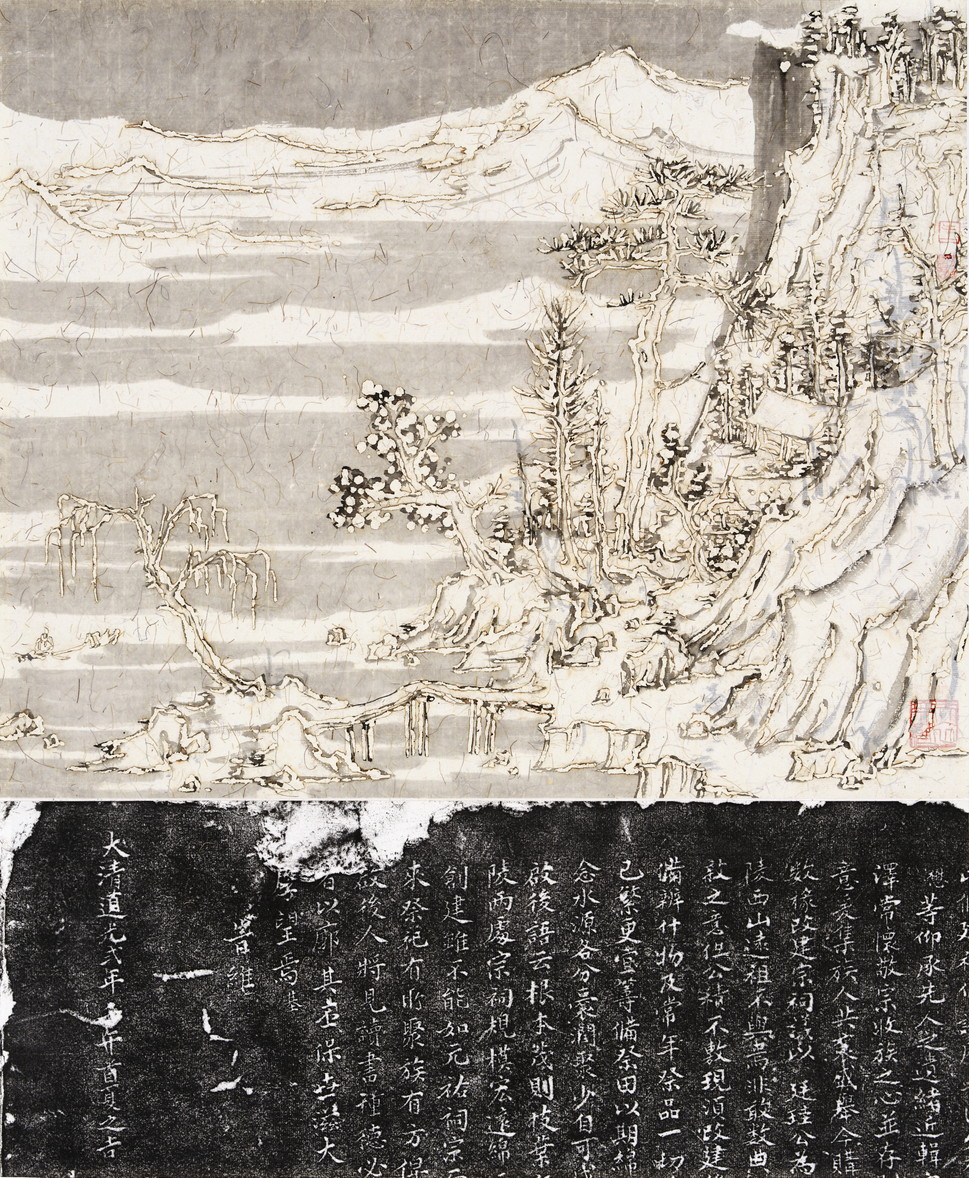 等仰承先人之遺緒近輯
澤常懷敬宗收族之心並存
意爰集族人共襄盛舉今購
數椽改建宗祠議以 廷珪公為
陵西山遠祖不與焉非敢數典
敍之意但公積不敷現須改建
備辦什物及常年祭品一切
已繁更宜籌備祭田以期綿
念水源各分豪潤聚少自可
啟後語云根本茂則枝葉
陵兩處宗祠規模宏遠綿
創建雖不能如元祐祠宗
來祭祀有所聚族有方
後人將見讀書種德必
有以廓其 世滋大
望焉
曾維
大清道光弍年 首夏之吉